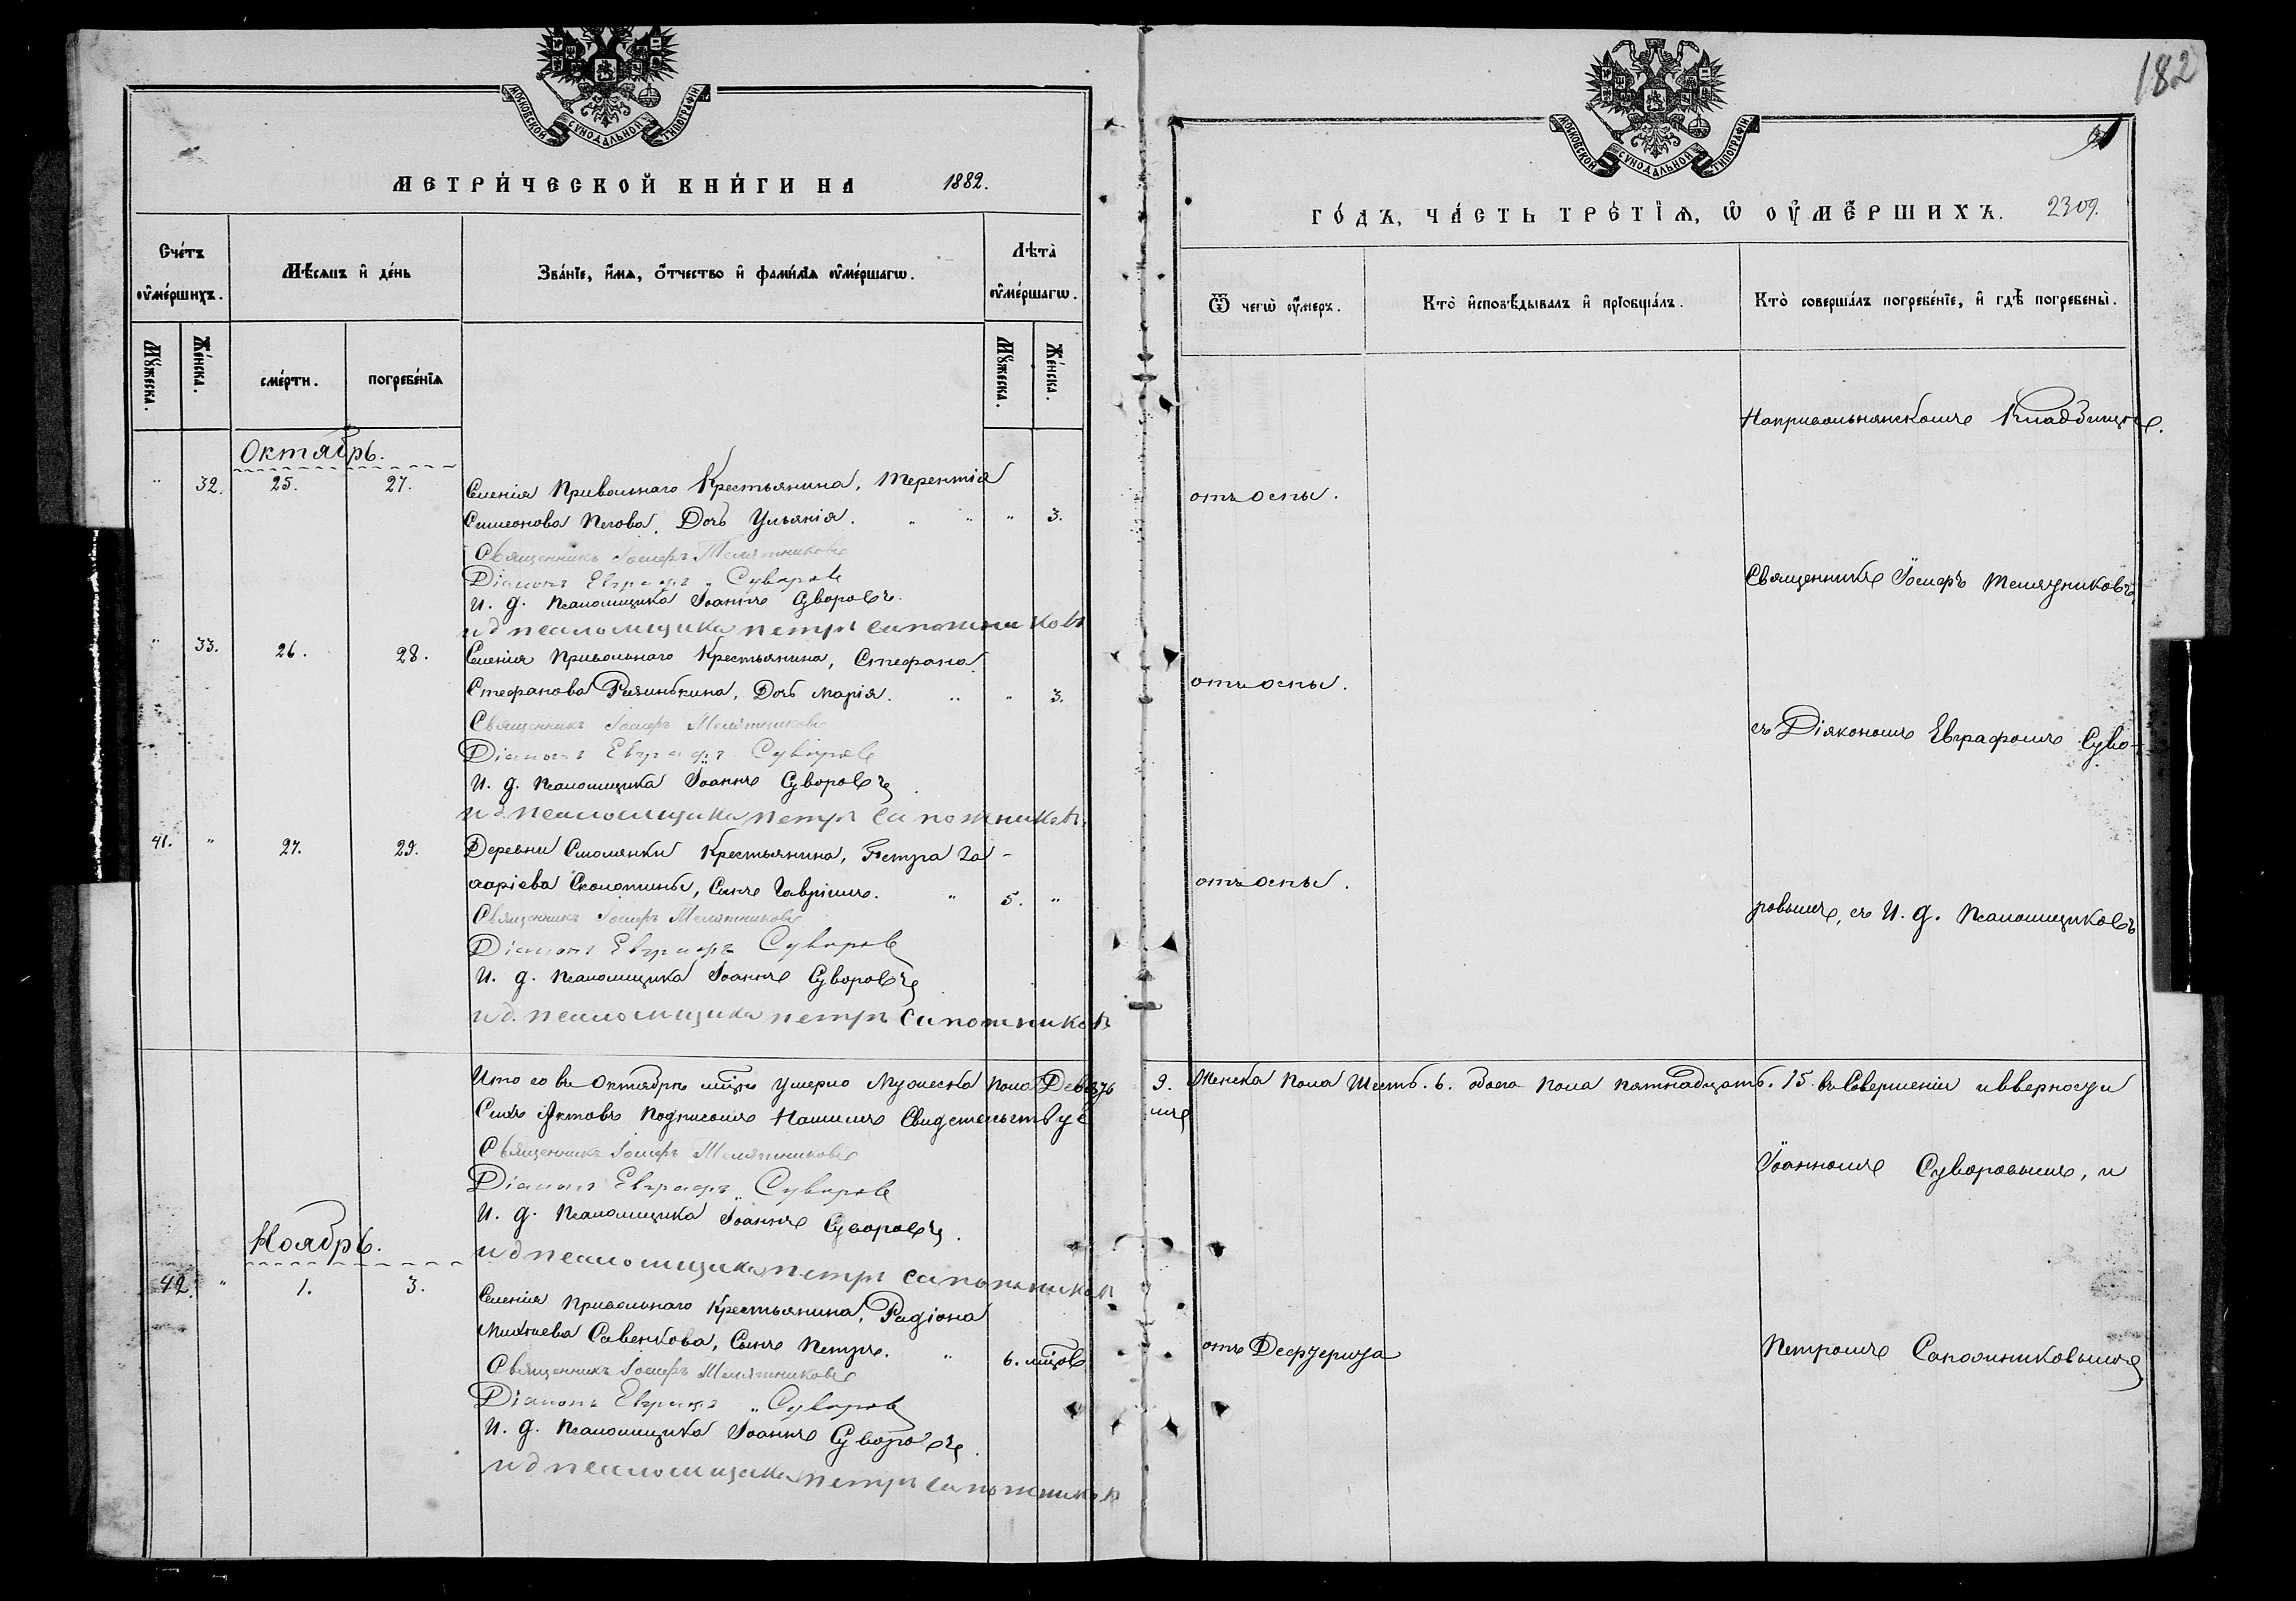 МОСКОВСКОЙ СѴНОДАЛЬНОЙ ТИПОГРАФІИ
МЕТРИ́ЧЕСКОЙ КНИ́ГИ НА 1882.
Сче́тъ ᲂу҆ме́ршихъ.
Мѣ́сѧцъ и҆ де́нь
Зва́нїе, и҆́мѧ, ѻ҆́тчество и҆ фами́лїѧ ᲂу҆ме́ршагѡ.
Лѣта̀ ᲂу҆ме́ршагѡ.
Мꙋ́жеска.
Же́нска.
сме́рти.
погребе́нїѧ
Мꙋ́жеска.
Же́нска.
Октябрь.
" 32. 25. 27. Селенія Привольнаго Крестьянина, Терентія
Симеонова Пегова, Дочь Ульянія. " " " 3.
Священникъ Іосифъ Телятниковъ
Діаконъ Евграфъ Суворовъ
И. д. Псаломщика Іоаннъ Суворовъ.
и д псаломщика петръ сапожниковъ
" 33. 26. 28. Селенія Привольнаго Крестьянина, Стефана
Стефанова Дочь Марія. " " 3.
Священникъ Іосифъ Телятниковъ
Діаконъ Евграфъ Суворовъ
И. д. Псаломщика Іоаннъ Суворовъ.
и д псаломщика петръ сапожниковъ.
41. " 27. 29. Деревни Смолянки Крестьянина, Петра За-
харіева Сынъ Гавріилъ. " 5. "
Священникъ Іосифъ Телятниковъ
Діаконъ Евграфъ Суворовъ
И. д. Псаломщика Іоаннъ Суворовъ
и д. псаломщика петръ сапожниковъ
Итого въ Октябрѣ мцѣ Умерло Мужеска пола Девять
Сихъ Актовъ Подписомъ Нашимъ Свидетельствуе
Священникъ Іосифъ Телятниковъ
Діаконъ Евграфъ Суворовъ
И. д. Псаломщика Іоаннъ Суворовъ.
и д псаломщика петръ сапожниковъ
Ноябрь.
42. " 1. 3. Селенія Привольнаго Крестьянина, Радіона
Савенкова, Сынъ Петръ. " 6. мцовъ
Священникъ Іосифъ Телятниковъ
Діаконъ Евграфъ Суворовъ
И. д. Псаломщика Іоаннъ Суворовъ.
и д псаломщика петръ сапожниковъ
182
МОСКОВСКОЙ СѴНОДАЛЬНОЙ ТИПОГРАФІИ
ГО́ДЪ, ЧА́СТЬ ТРЕ́ТЇѦ, Ѡ҆ ОУ҆МЕ́РШИХЪ. 2309.
Ѿ чегѡ̀ ᲂу҆́меръ.
Кто̀ и҆сповѣ́дывалъ и҆ прїобща́лъ.
Кто̀ соверша́лъ погребе́нїе, и҆ гдѣ̀ погребены̀.
На привольнянскомъ Кладбищѣ.
отъ оспы.
Священникъ Іосифъ Телятниковъ,
отъ оспы.
съ Діякономъ Евграфомъ Суво-
отъ оспы.
ровымъ, съ И. д. Псаломщиковъ
9. Женска пола Шесть. 6. обоего пола пятнадцать. 15. въ Совершеніи и вверности
мъ
Іоанномъ Суворовымъ, и
отъ Дефтерита
Петромъ Сапожниковымъ